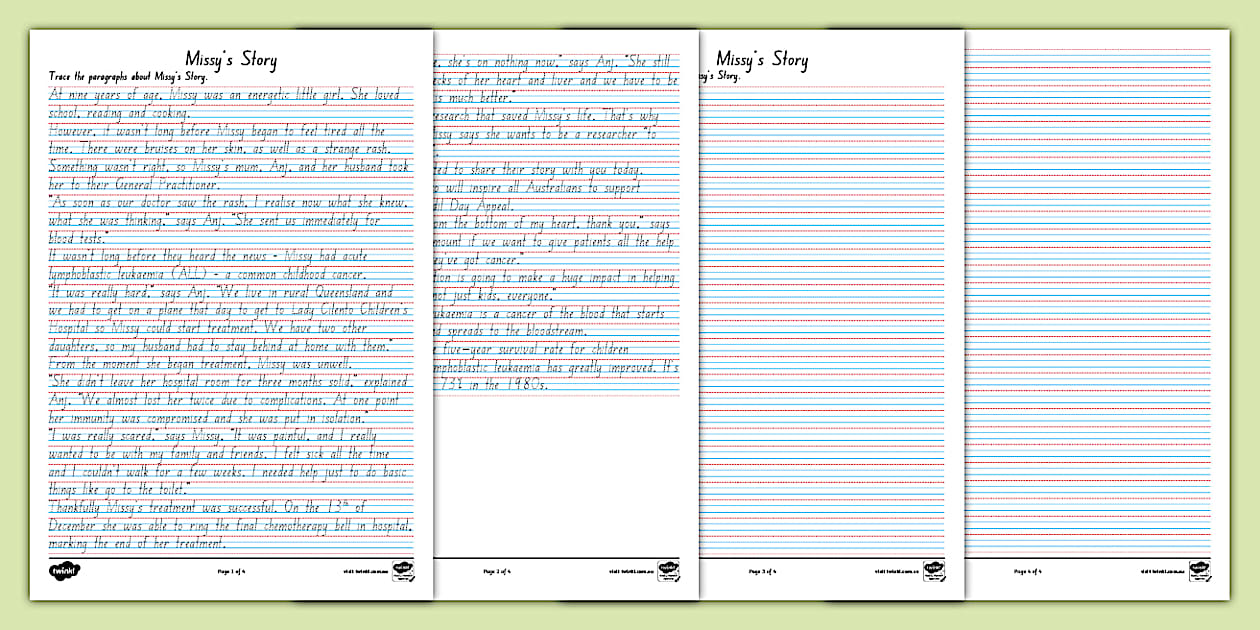 Missy's Story
Trace the paragraphs about Missy's Story.
At nine years of age, Missy was an energetic little girl. She loved
school, reading and cooking.
However, it wasn't long before Missy began to feel tired all the
time. There were bruises on her skin, as well as a strange rash.
Something wasn't right, so Missy's mum, Anj, and her husband took
her to their General Practitioner.
"As soon as our doctor saw the rash, I realise now what she knew,
what she was thinking," says Anj. "She sent us immediately for
blood tests."
It wasn't long before they heard the news - Missy had acute
lymphoblastic leukaemia (ALL) - a common childhood cancer.
"It was really hard," says Anj. "We live in rural Queensland and
we had to get on a plane that day to get to Lady Cilento Children's
Hospital so Missy could start treatment. We have two other
daughters, so my husband had to stay behind at home with them."
From the moment she began treatment, Missy was unwell.
"She didn't leave her hospital room for three months solid," explained
Anj. "We almost lost her twice due to complications. At one point
her immunity was compromised and she was put in isolation."
"I was really scared," says Missy. "It was painful, and I really
wanted to be with my family and friends. I felt sick all the time
and I couldn't walk for a few weeks. I needed help just to do basic
things like go to the toilet."
Thankfully Missy's treatment was successful. On the 13th of
December she was able to ring the final chemotherapy bell in hospital,
marking the end of her treatment.
twinkl
Page 1 of 4
visit twinkl.com.au
she's on nothing now," says Anj. "She still
of her heart and liver and we have to be
is much better."
research that saved Missy's life. That's why
Missy says she wants to be a researcher "to
to share their story with you today.
will inspire all Australians to support
Day Appeal.
the bottom of my heart, thank you," says
if we want to give patients all the help
they've got cancer."
is going to make a huge impact in helping
not just kids, everyone."
leukaemia is a cancer of the blood that starts
spreads to the bloodstream.
five-year survival rate for children
lymphoblastic leukaemia has greatly improved. It's
73% in the 1980s.
Page 2 of 4
visit twinkl.com.au
twinkl
Missy's Story
Story.
Page 3 of 4
visit twinkl.com.au
twinkl
Page 4 of 4
visit twinkl.com.au
twinkl